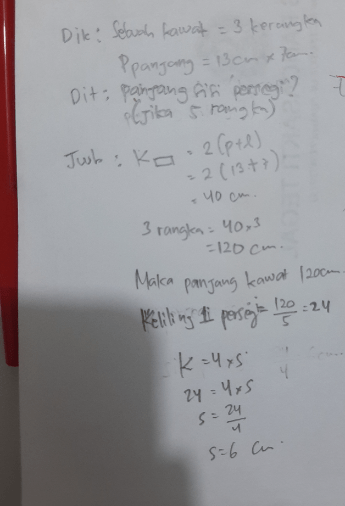 Dik : Sebuah kawat = 3 kerangka
Ppanjang = 13 cm x 7 cm.
Dit : panjang sisi persegi?
(Jika 5 rangka)
Jwb : K▭ = 2(p+l)
= 2(13+7)
= 40 cm.
3 rangka = 40 x 3
= 120 cm.
Maka panjang kawat 120 cm
Keliling 1 persegi = 120/5 = 24
K = 4 x s
24 = 4 x s
s = 24/4
s = 6 cm.